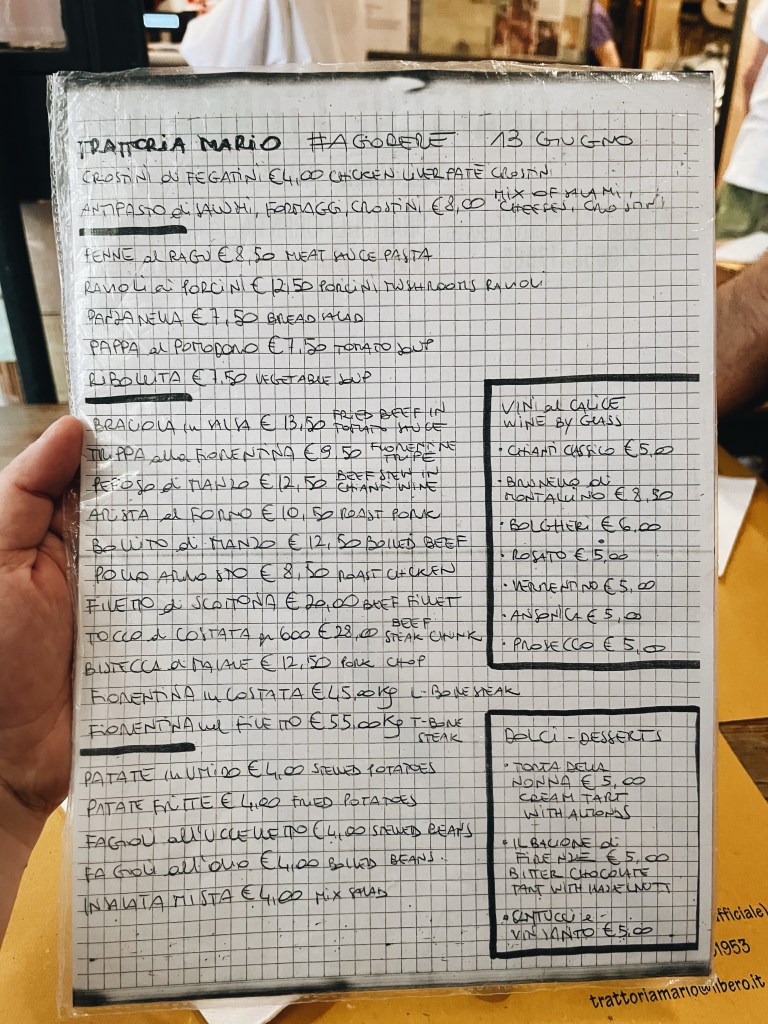 TRATTORIA MARIO #AGODERE 13 GIUGNO
CROSTINI di FEGATINI €4,00 CHICKEN LIVER PATÈ CROSTINI
ANTIPASTO di SALUMI, FORMAGGI, CROSTINI €8,00 MIX OF SALAMI, CHEESES, CROSTINI
PENNE al RAGÙ €8,50 MEAT SAUCE PASTA
RAVIOLI ai PORCINI €12,50 PORCINI MUSHROOMS RAVIOLI
PANZANELLA €7,50 BREAD SALAD
PAPPA al POMODORO €7,50 TOMATO SOUP
RIBOLLITA €7,50 VEGETABLE SOUP
BRACIOLA in SALSA €13,50 FRIED BEEF IN TOMATO SAUCE
TRIPPA alla FIORENTINA €9,50 FIORENTINE TRIPE
PEPOSO di MANZO €12,50 BEEF STEW IN CHIANTI WINE
ARISTA al FORNO €10,50 ROAST PORK
BOLLITO di MANZO €12,50 BOILED BEEF
POLLO ARROSTO €8,50 ROAST CHICKEN
FILETTO di SCOTTONA €20,00 BEEF FILLET
TOCCO di COSTATA gr 600 €28,00 BEEF STEAK CHUNK
BISTECCA di MAIALE €12,50 PORK CHOP
FIORENTINA in COSTATA €45,00 Kg L-BONE STEAK
FIORENTINA nel FILETTO €55,00 Kg T-BONE STEAK
PATATE in UMIDO €4,00 STEWED POTATOES
PATATE FRITTE €4,00 FRIED POTATOES
FAGIOLI all'UCCELLETTO €4,00 STEWED BEANS
FAGIOLI all'olio €4,00 BOILED BEANS.
INSALATA MISTA €4,00 MIX SALAD
VINI al CALICE
WINE BY GLASS
• CHIANTI CLASSICO €5,00
• BRUNELLO di
MONTALCINO €8,50
• BOLGHERI €6,00
• ROSATO €5,00
• VERMENTINO €5,00
• ANSONICA €5,00
• PROSECCO €5,00
DOLCI - DESSERTS
• TORTA DELLA
NONNA €5,00
CREAM TART
WITH ALMONDS
• IL BACIONE di
FIRENZE €5,00
BITTER CHOCOLATE
TART WITH HAZELNUTT
• CANTUCCI e
VIN SANTO €5,00
fficiale)
1953
trattoriamario@libero.it